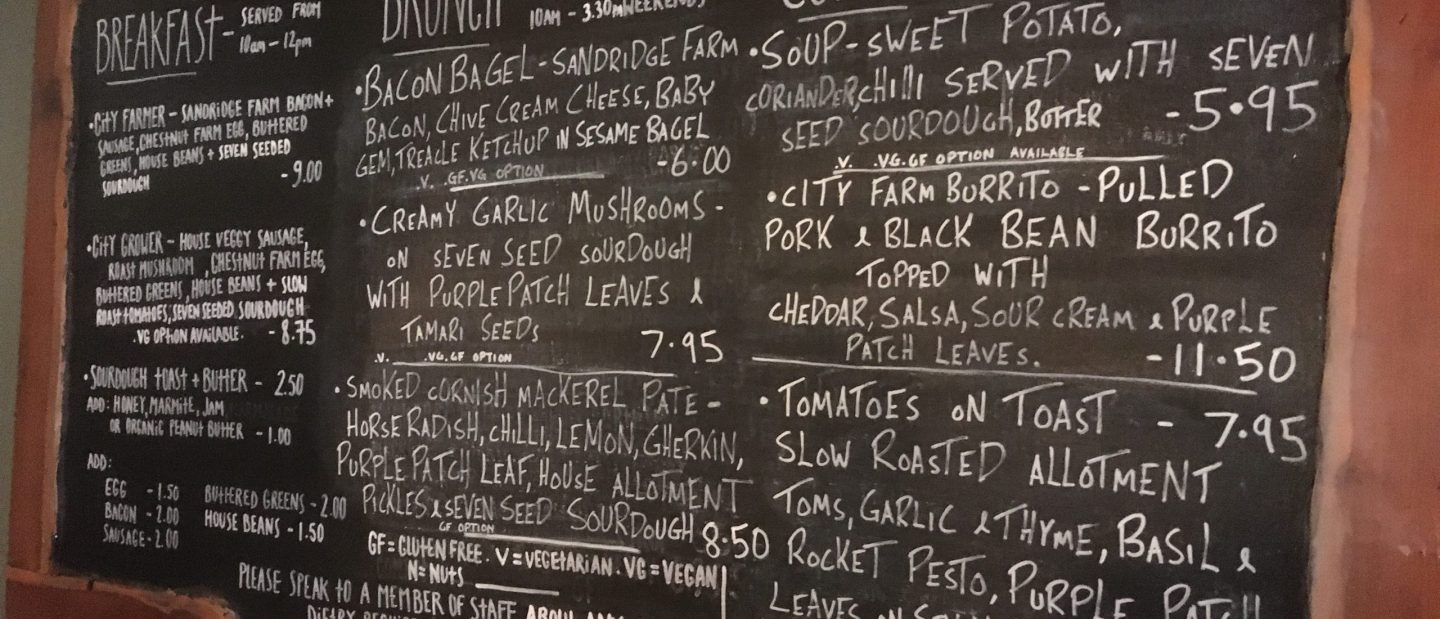 BREAKFAST - SERVED FROM
10am - 12pm
• CITY FARMER - SANDRIDGE FARM BACON +
SAUSAGE, CHESTNUT FARM EGG, BUTTERED
GREENS, HOUSE BEANS + SEVEN SEEDED
SOURDOUGH - 9.00
• CITY GROWER - HOUSE VEGGY SAUSAGE,
ROAST MUSHROOM, CHESTNUT FARM EGG,
BUTTERED GREENS, HOUSE BEANS + SLOW
ROAST TOMATOES, SEVEN SEEDED SOURDOUGH
.VG OPTION AVAILABLE. - 8.75
• SOURDOUGH TOAST + BUTTER - 2.50
ADD: HONEY, MARMITE, JAM
OR ORGANIC PEANUT BUTTER - 1.00
ADD:
EGG - 1.50
BACON - 2.00
SAUSAGE - 2.00
BUTTERED GREENS - 2.00
HOUSE BEANS - 1.50
BRUNCH 10AM - 3.30PM WEEKENDS
• BACON BAGEL - SANDRIDGE FARM
BACON, CHIVE CREAM CHEESE, BABY
GEM, TREACLE KETCHUP IN SESAME BAGEL
.V. .GF.VG OPTION - 6.00
• CREAMY GARLIC MUSHROOMS -
ON SEVEN SEED SOURDOUGH
WITH PURPLE PATCH LEAVES &
TAMARI SEEDS 7.95
.V. .VG.GF OPTION
• SMOKED CORNISH MACKEREL PATE -
HORSERADISH, CHILLI, LEMON, GHERKIN,
PURPLE PATCH LEAF, HOUSE ALLOTMENT
PICKLES & SEVEN SEED SOURDOUGH 8.50
GF OPTION
GF = GLUTEN FREE. V = VEGETARIAN. VG = VEGAN
N = NUTS
PLEASE SPEAK TO A MEMBER OF STAFF ABOUT
• SOUP - SWEET POTATO,
CORIANDER, CHILLI SERVED WITH SEVEN
SEED SOURDOUGH, BUTTER - 5.95
.V. .VG.GF OPTION AVAILABLE
• CITY FARM BURRITO - PULLED
PORK & BLACK BEAN BURRITO
TOPPED WITH
CHEDDAR, SALSA, SOUR CREAM & PURPLE
PATCH LEAVES. - 11.50
• TOMATOES ON TOAST - 7.95
SLOW ROASTED ALLOTMENT
TOMS, GARLIC & THYME, BASIL &
ROCKET PESTO, PURPLE PATCH
LEAVES ON